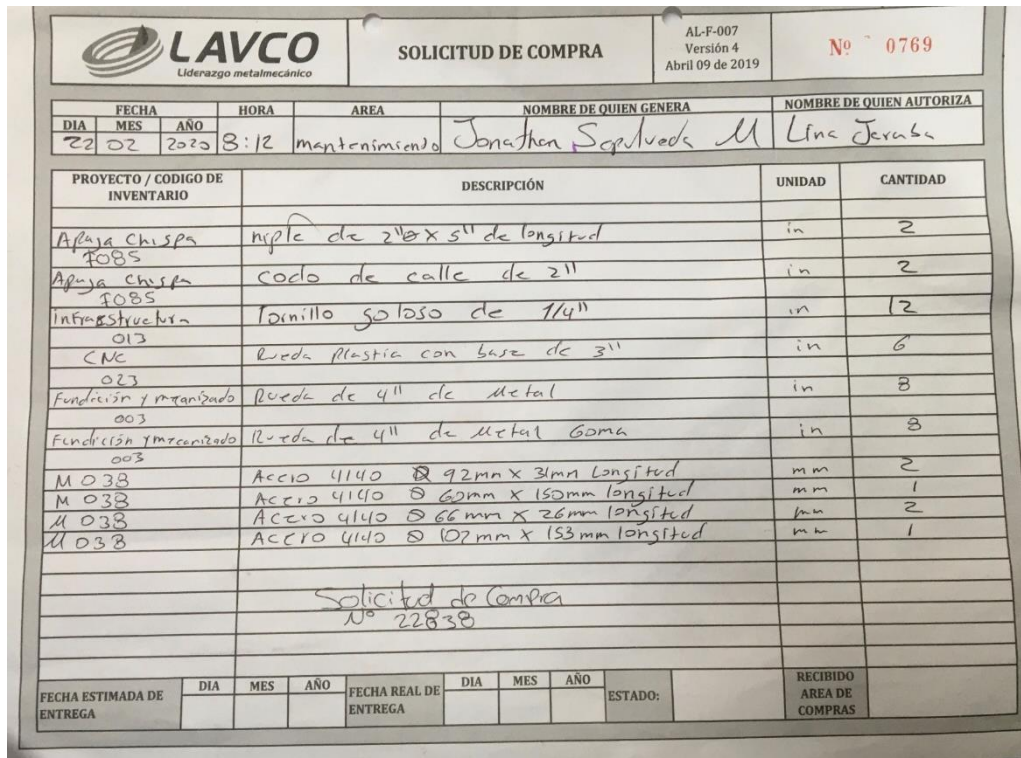 LAVCO
Liderazgo metalmecánico
SOLICITUD DE COMPRA
AL-F-007
Versión 4
Abril 09 de 2019
Nº 0769
FECHA HORA AREA NOMBRE DE QUIEN GENERA NOMBRE DE QUIEN AUTORIZA
DIA MES AÑO
22 02 2020 8:12 mantenimiento Jonathan Sepulveda M Lina Jaraba
PROYECTO / CODIGO DE INVENTARIO DESCRIPCIÓN UNIDAD CANTIDAD
Apaga chispa niple de 2"Ø X 5" de longitud in 2
7085
Apaga chispa codo de calle de 2" in 2
7085
infraestructura Tornillo goloso de 1/4" in 12
013
CNC Rueda Plastia con base de 3" in 6
023
Fundición y mecanizado Rueda de 4" de Metal in 8
003
Fundición y mecanizado Rueda de 4" de Metal Goma in 8
003
M 038 Acero 4140 Ø 92mm X 31mm Longitud mm 2
M 038 Acero 4140 Ø 60mm X 150mm longitud mm 1
M 038 Acero 4140 Ø 66 mm X 26mm longitud mm 2
M 038 Acero 4140 Ø 102 mm X 153 mm longitud mm 1
Solicitud de Compra
Nº 22838
FECHA ESTIMADA DE ENTREGA DIA MES AÑO FECHA REAL DE ENTREGA DIA MES AÑO ESTADO: RECIBIDO AREA DE COMPRAS